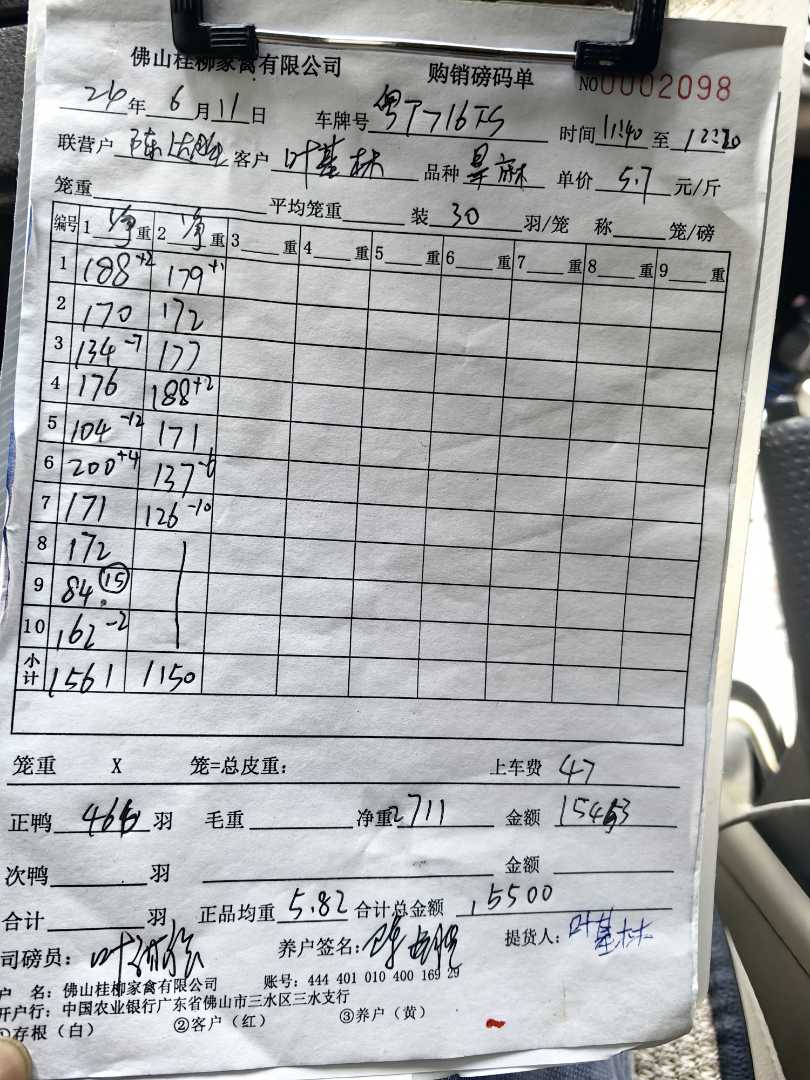 佛山桂柳家禽有限公司 购销磅码单 NO0002098
24年 6月11日 车牌号 时间11:40至12:20
联营户 客户叶基林 品种 单价5.7元/斤
笼重 平均笼重 装30羽/笼 称 笼/磅
编号 1净重 2净重 3 重 4 重 5 重 6 重 7 重 8 重 9 重
1 188+2 179+1
2 170 172
3 134-7 177
4 176 188+2
5 104-12 171
6 200+4 137-6
7 171 126-10
8 172
9 84 15
10 162-2
小计 1561 1150
笼重 X 笼=总皮重: 上车费 47
正鸭 羽 毛重 净重2711 金额
次鸭 羽 金额
合计 羽 正品均重5.82合计总金额15500
司磅员: 养户签名: 提货人:叶基林
户 名: 佛山桂柳家禽有限公司 账号: 444 401 010 400 169 29
开户行: 中国农业银行广东省佛山市三水区三水支行
①存根（白） ②客户（红） ③养户（黄）